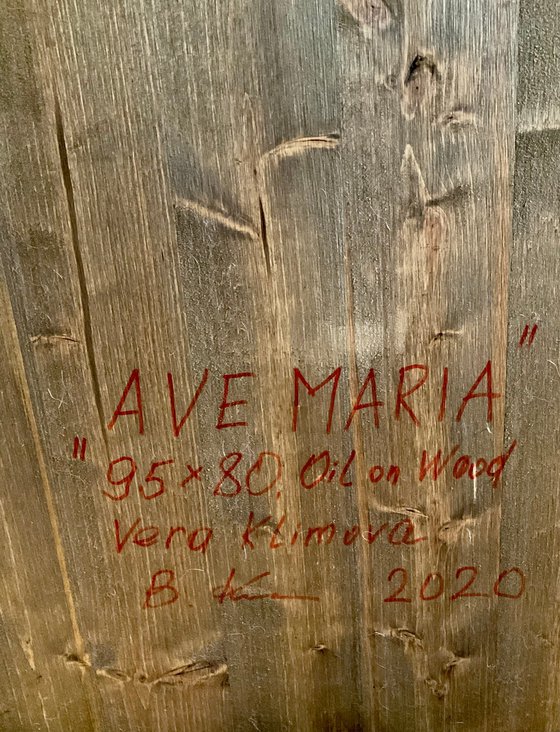 "AVE MARIA"
95×80, Oil on Wood
Vera Klimova
В 2020